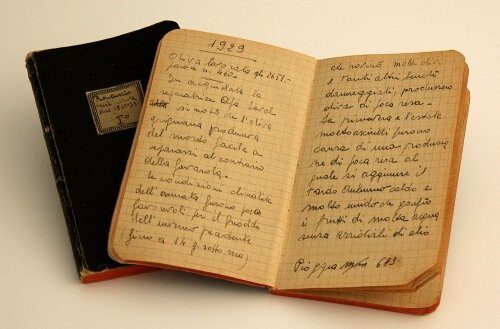 1929
Oliva lavorata qli 2651-
In acquistata la
separatrice Alfa Laval
si notò che l'oliva
gignana produceva
del mosto facile a
separarsi al contrario
della favarola.
Le condizioni climatiche
dell'annata furono poco
favorevoli per il freddo
dell'inverno precedente
(fino a 14 g. sotto zero)
che rovinò molti olivi
e tanti altri benchè
danneggiati, produssero
oliva di poca resa.
La primavera e l'estate
molto asciutti furono
causa di una produzio
ne di poca resa al
quale si aggiunse il
tardo Autunno caldo e
molto umido che gonfiò
i frutti di molta acqua
senza arricchirli di olio
Pioggia m/m 683